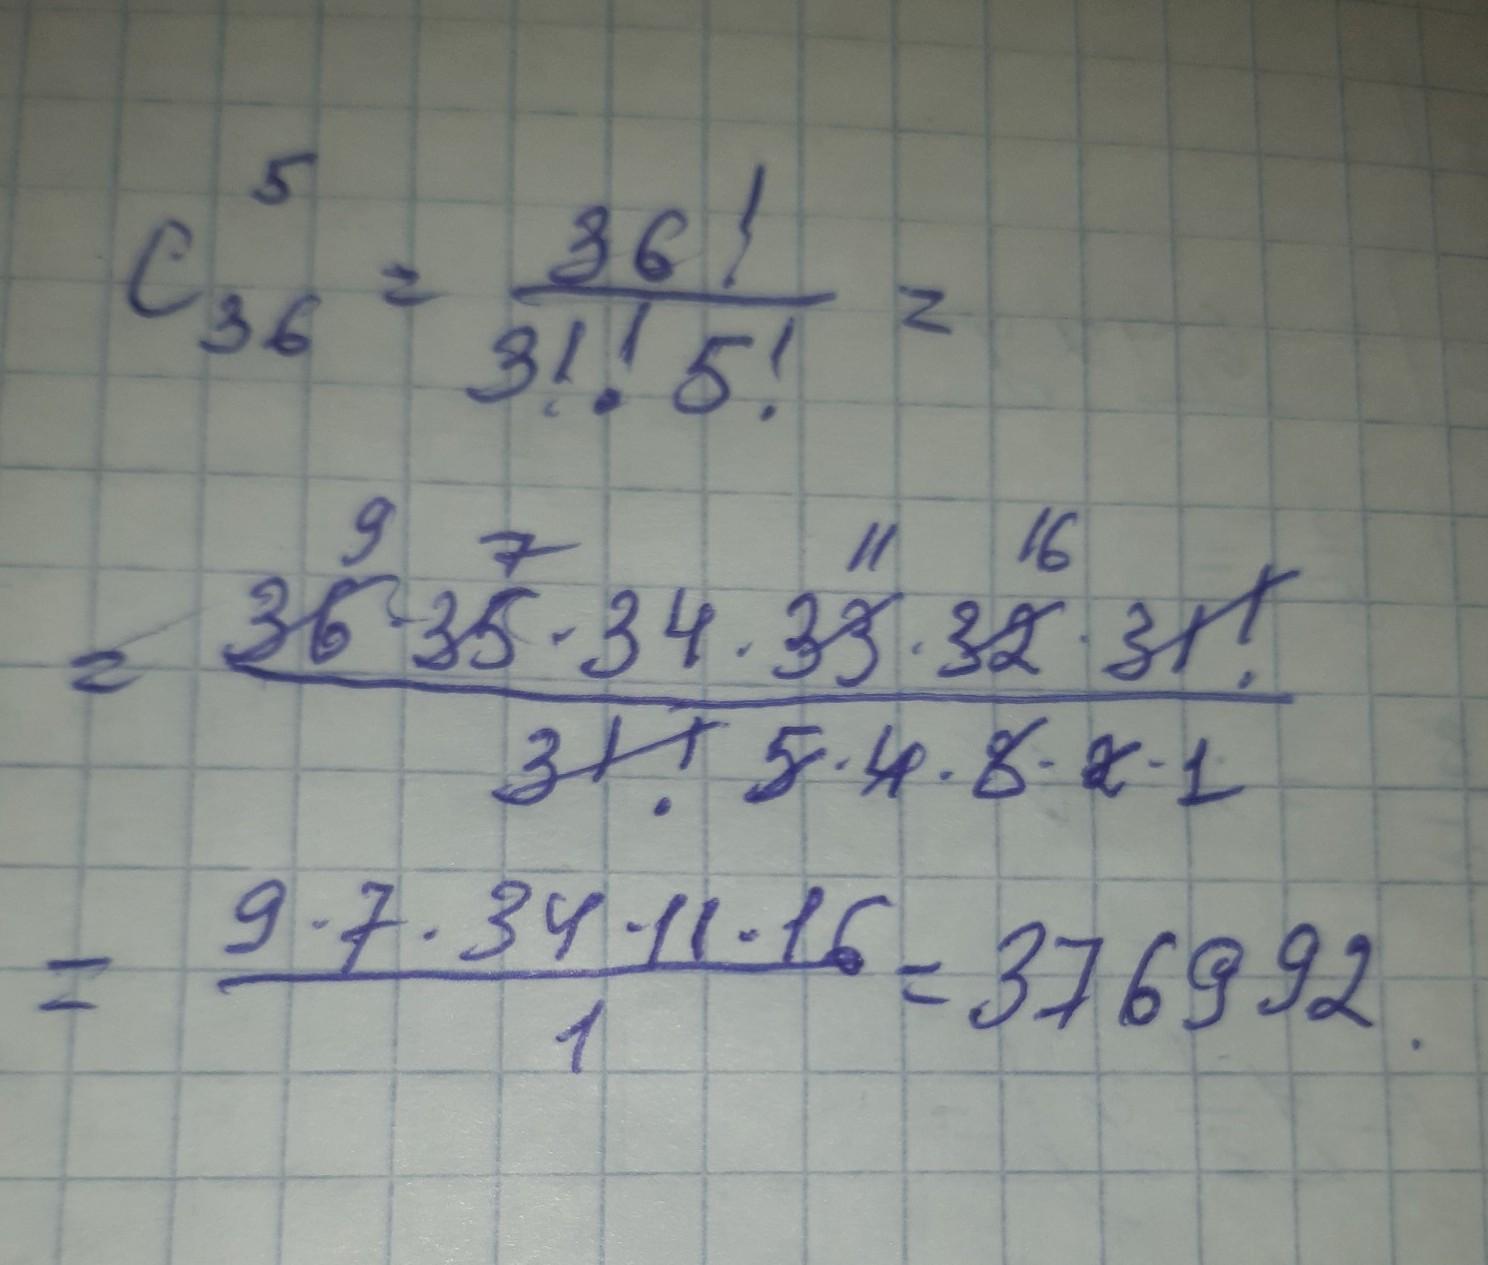 C₃₆⁵ = 36! / 31! 5! =
= 36⁹ · 35⁷ · 34 · 33¹¹ · 32¹⁶ · 31! / 31! 5 · 4 · 3 · 2 · 1
= 9 · 7 · 34 · 11 · 16 / 1 = 376992.